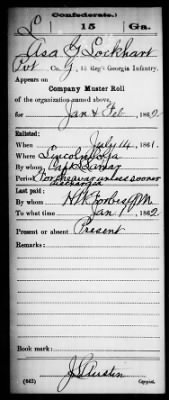 (Confederate.)
L 15 Ga.
Asa G Lockhart
Pvt Co. G, 15 Reg't Georgia Infantry.
Appears on
Company Muster Roll
of the organization named above,
for Jan & Feb, 1862
Enlisted:
When July 14, 1861.
Where Lincoln Co Ga
By whom Capt Lamar
Period For the war unless sooner
discharged
Last paid:
By whom H W Forbes
To what time Jan 1, 1862
Present or absent Present
Remarks:
Book mark:
(642) J S Austin
Copyist.